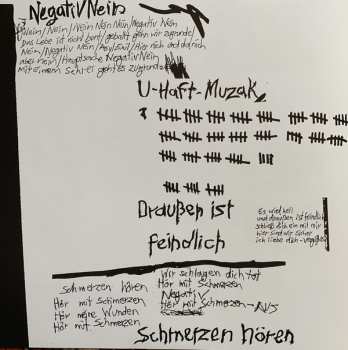 Negativ/Nein
Nein/Nein/Nein Nein Nein/Negativ Nein
Das Lebe ist nicht bunt/geballt gehn wir zugrunde/
Nein/Negativ Nein/Asyl/Exil/Hier nich und da nich
aber nein/Hauptsache Negativ Nein
Mit einem Schrei geht es zugrunde
U-Haft-Muzak
Draußen ist
feindlich
Es wird hell
und draußen ist feindlich
schließ dich ein mit mir
hier sind wir sicher
ich liebe dich
Schmerzen hören
Hör mit Schmerzen
Hör meine Wunden
Hör mit Schmerzen
Wir schlagen dich tot
Hör mit Schmerzen
Negativ
Hör mit Schmerzen
Schmerzen hören